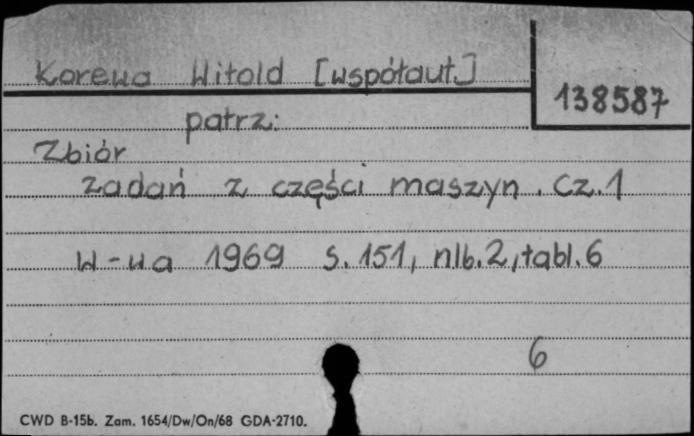 Korewa Witold [współaut.]
138587
patrz:
Zbiór
zadań z części maszyn. Cz.1
W-wa 1969 s. 151, nlb. 2, tabl. 6
6
CWD B-15b. Zam. 1654/Dw/On/68 GDA-2710.